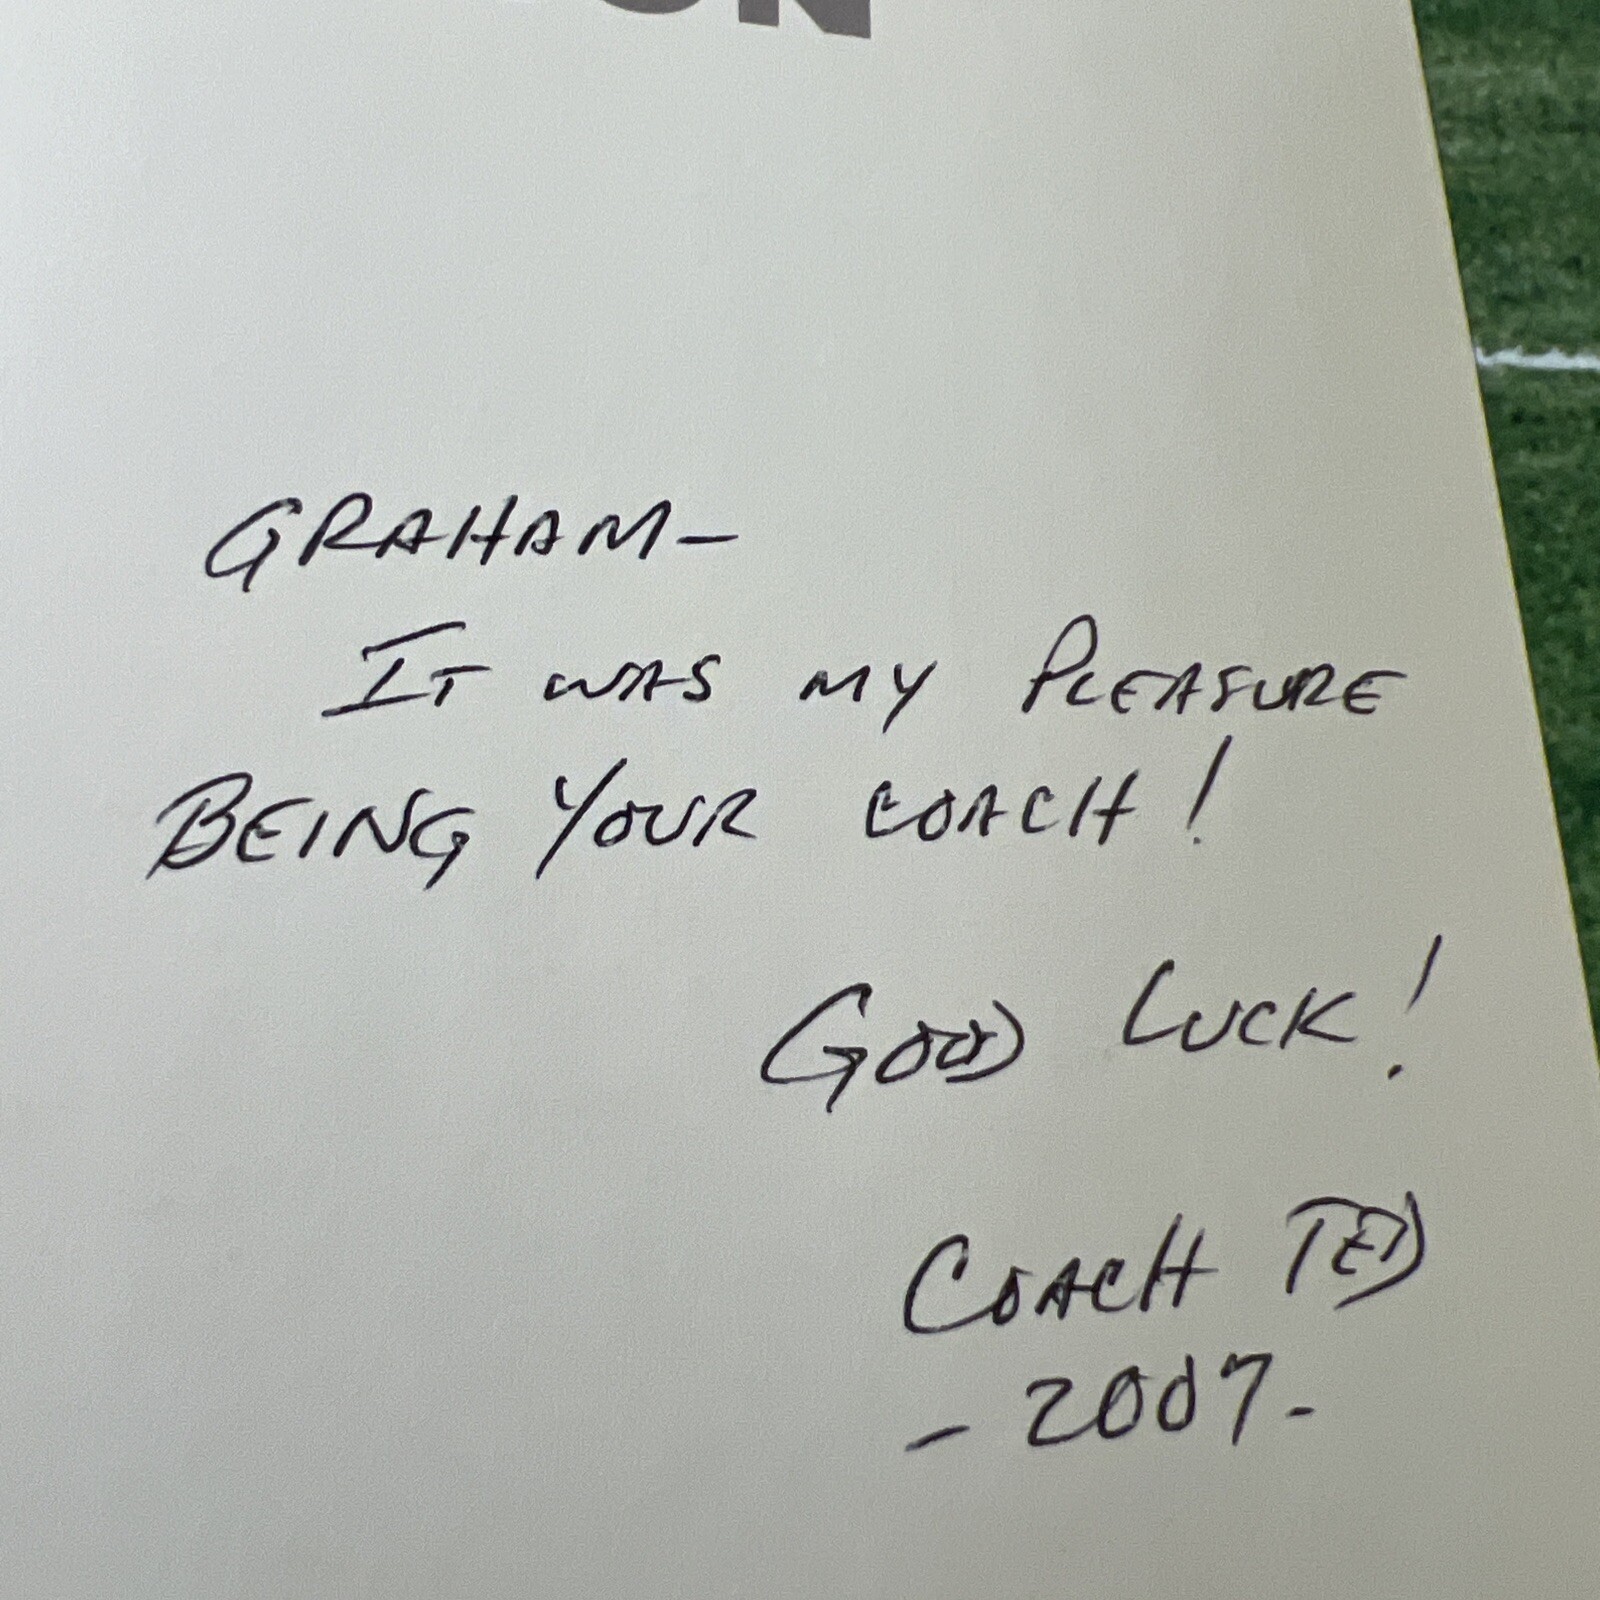 GRAHAM-
IT WAS MY PLEASURE
BEING YOUR COACH!
GOOD LUCK!
COACH TED
- 2007-